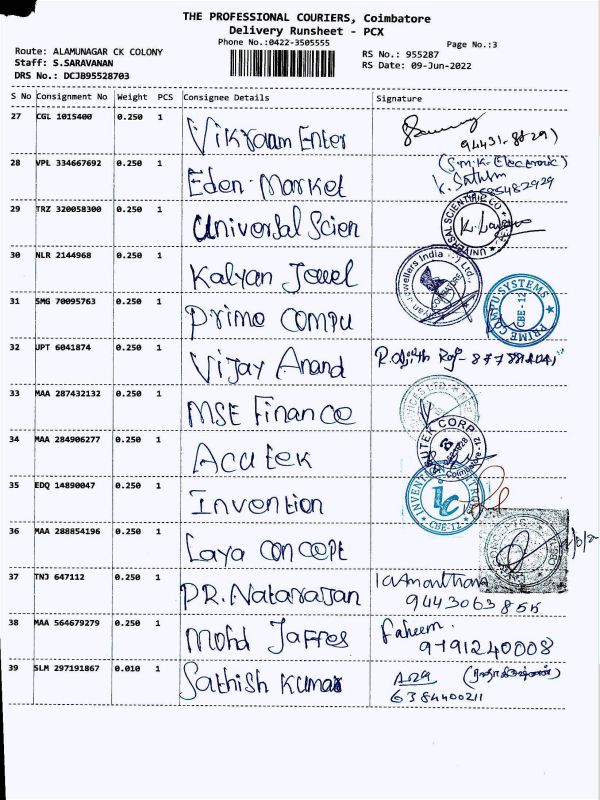 THE PROFESSIONAL COURIERS, Coimbatore
Delivery Runsheet - PCX
Phone No.:0422-3505555
Page No.:3
Route: ALAMUNAGAR CK COLONY
RS No.: 955287
Staff: S.SARAVANAN
RS Date: 09-Jun-2022
DRS No.: DCJB95528703
S No Consignment No Weight PCS Consignee Details Signature
27 CGL 1015400 0.250 1 Vikraam Enter
28 VPL 334667692 0.250 1 Eden Market (S.M.K. Electronic)
29 TRZ 320058300 0.250 1 Universal Scien UNIVERSAL SCIENTIFIC CO
30 NLR 2144968 0.250 1 Kalyan Jewel Jewellers India
31 SMG 70095763 0.250 1 Prime Compu PRIME COMPU SYSTEMS CBE-12
32 UPT 6041874 0.250 1 Vijay Anand
33 MAA 287432132 0.250 1 MSE Finance
34 MAA 284906277 0.250 1 Acutek CORP
35 EDQ 14890047 0.250 1 Invention CBE-12
36 MAA 288854196 0.250 1 Laya Concept
37 TNJ 647112 0.250 1 PR.Natarajan
38 MAA 564679279 0.250 1 Mohd Jaffres Faheem. 9791240008
39 SLM 297191867 0.010 1 Sathish Kumar
6384400211